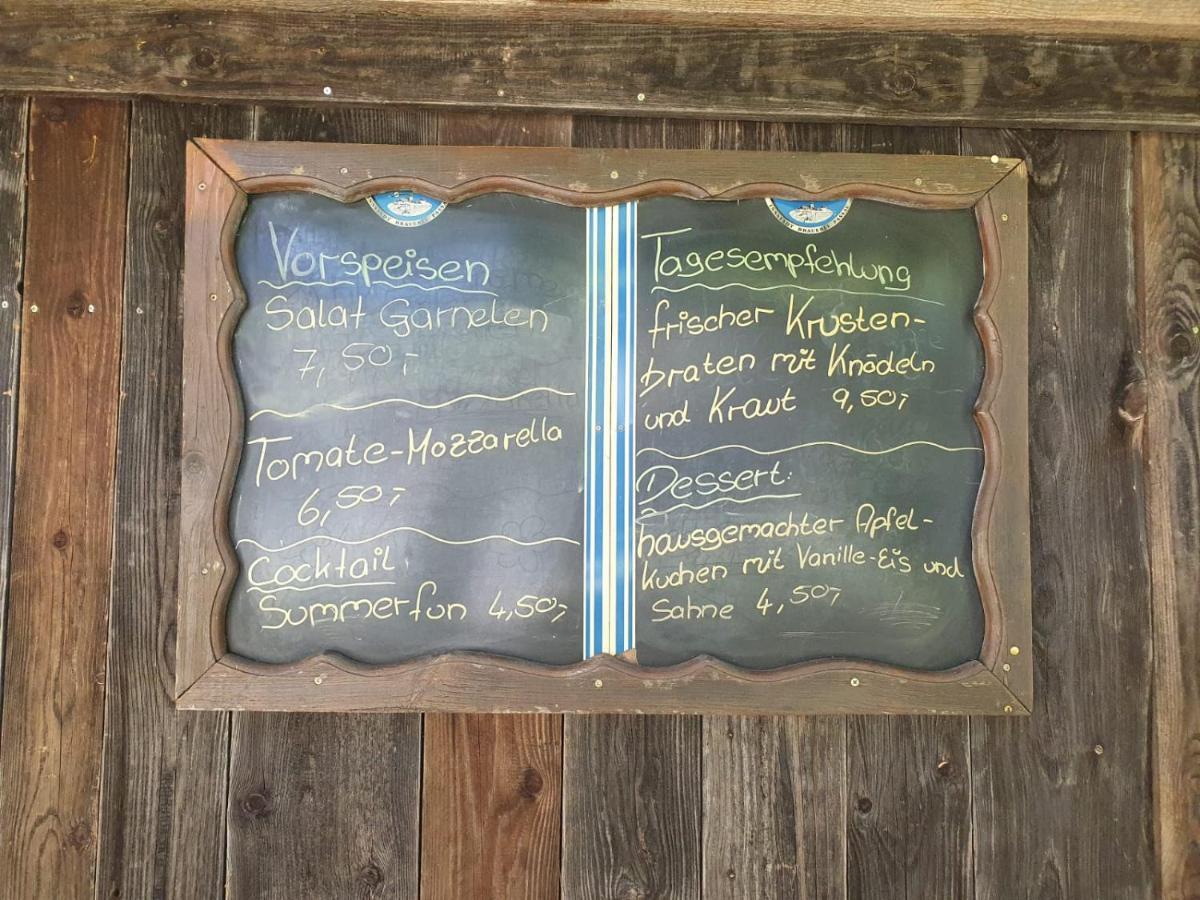 Vorspeisen
Salat Garnelen
7,50,-
Tomate-Mozzarella
6,50,-
Cocktail
Summerfun 4,50,-
Tagesempfehlung
frischer Krusten-
braten mit Knödeln
und Kraut 9,50,-
Dessert:
hausgemachter Apfel-
kuchen mit Vanille-Eis und
Sahne 4,50,-